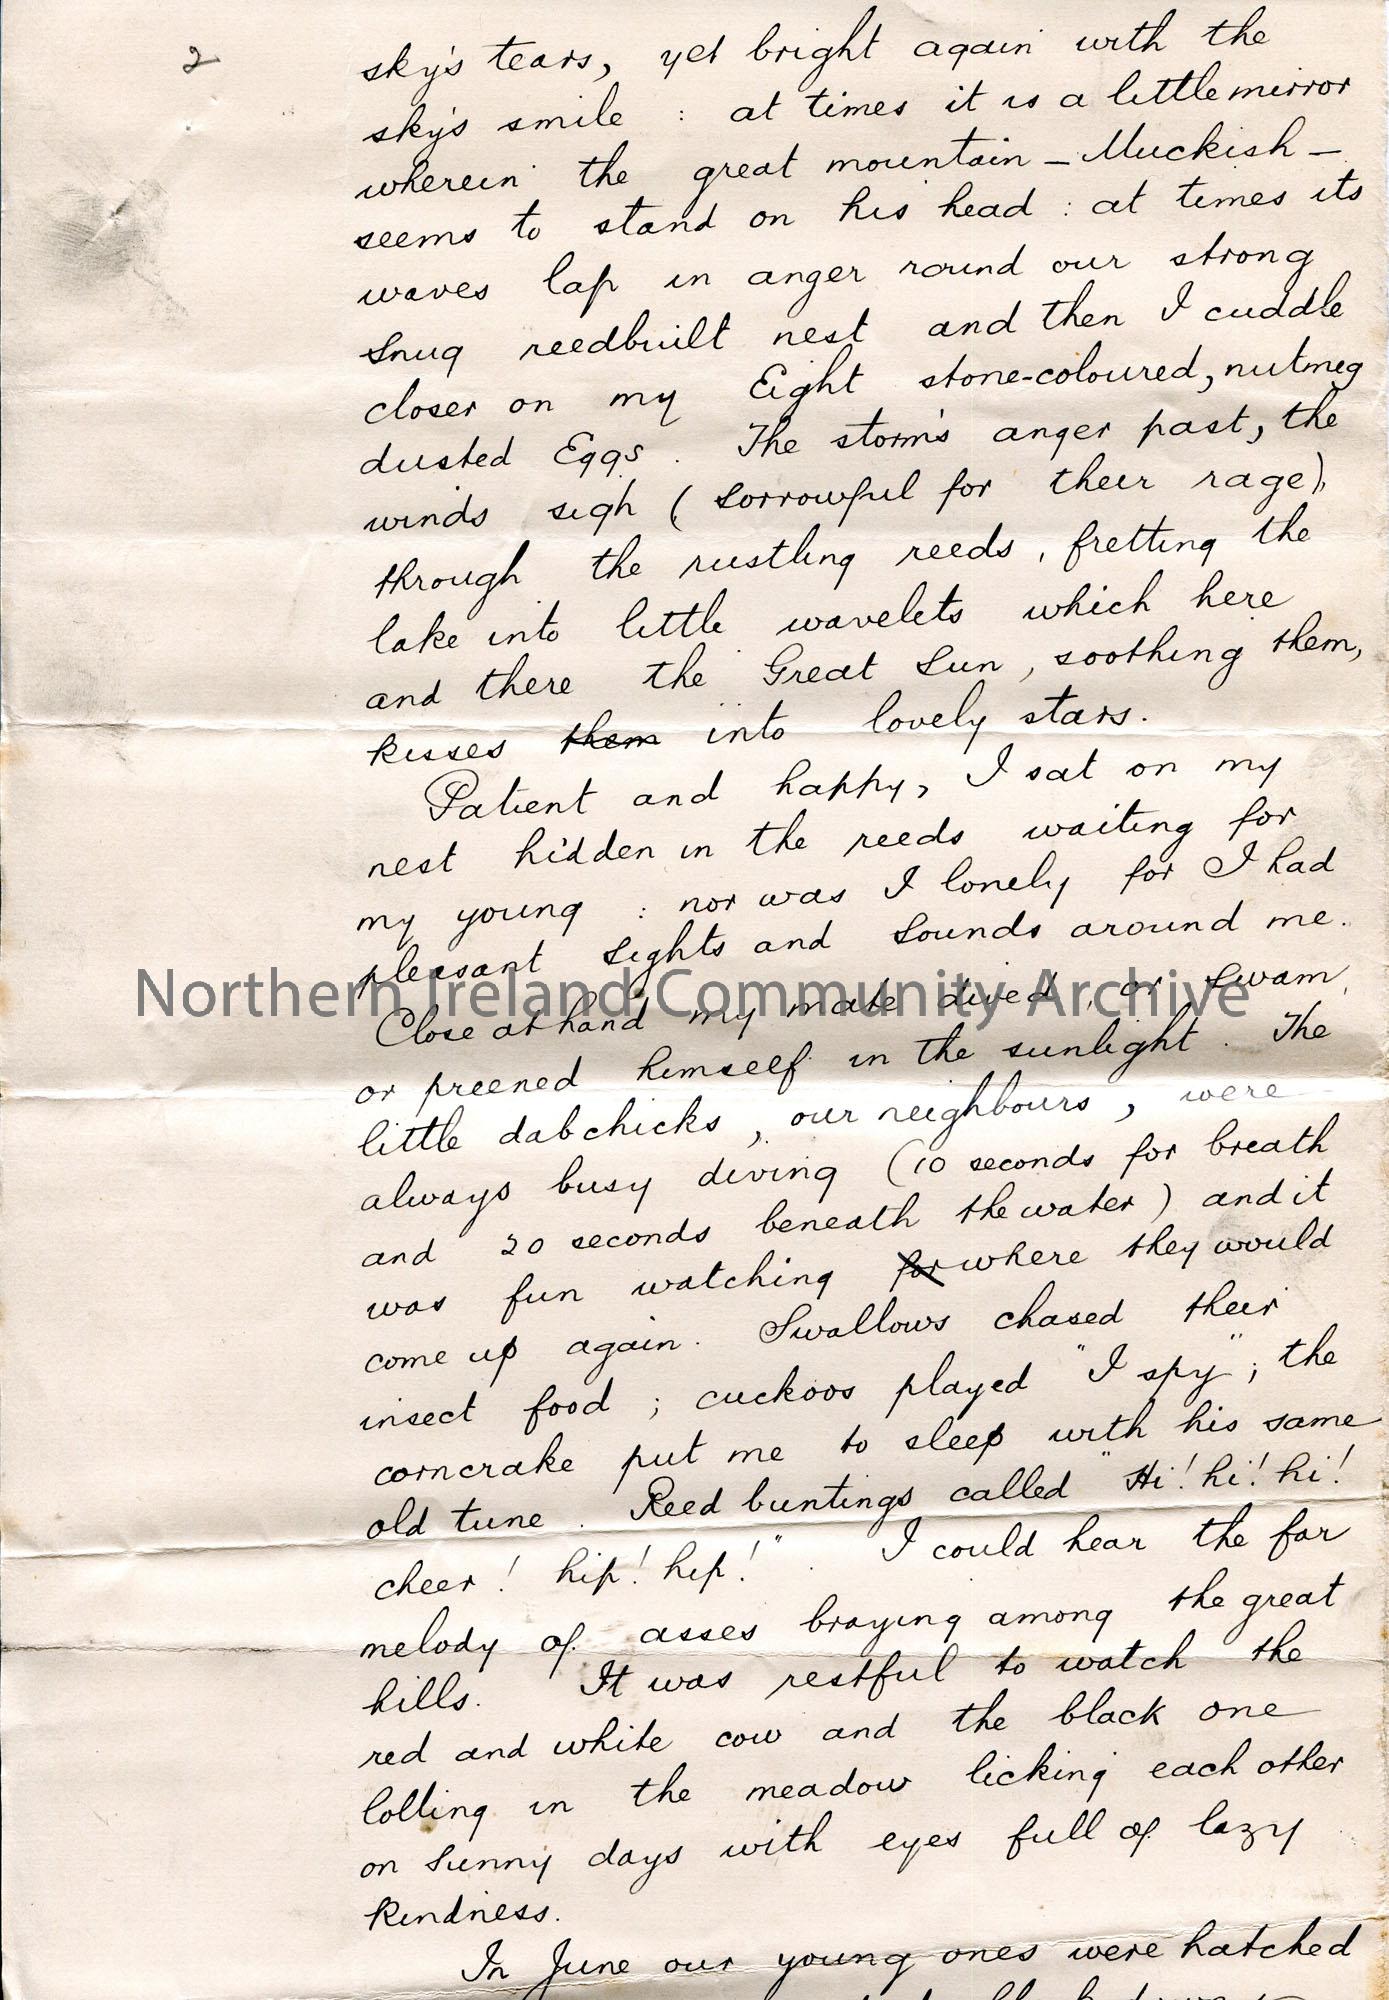 2
sky's tears, yet bright again with the
sky's smile : at times it is a little mirror
wherein the great mountain – Muckish –
seems to stand on his head : at times its
waves lap in anger round our strong
snug reedbuilt nest and then I cuddle
closer on my Eight stone-coloured, nutmeg
dusted Eggs. The storm's anger past, the
winds sigh (sorrowful for their rage),
through the rustling reeds, fretting the
lake into little wavelets which here
and there the Great Sun, soothing them,
kisses them into lovely stars.
Patient and happy, I sat on my
nest hidden in the reeds waiting for
my young : nor was I lonely for I had
pleasant sights and sounds around me.
Northern Ireland Community Archive
Close at hand my mate dived, or swam,
or preened himself in the sunlight. The
little dabchicks, our neighbours, were
always busy diving (10 seconds for breath
and 20 seconds beneath the water) and it
was fun watching for where they would
come up again. Swallows chased their
insect food ; cuckoos played "I spy" ; the
corncrake put me to sleep with his same
old tune. Reed buntings called "Hi! hi! hi!
cheer! hip! hip!". I could hear the far
melody of asses braying among the great
hills. It was restful to watch the
red and white cow and the black one
lolling in the meadow licking each other
on sunny days with eyes full of lazy
kindness.
In June our young ones were hatched